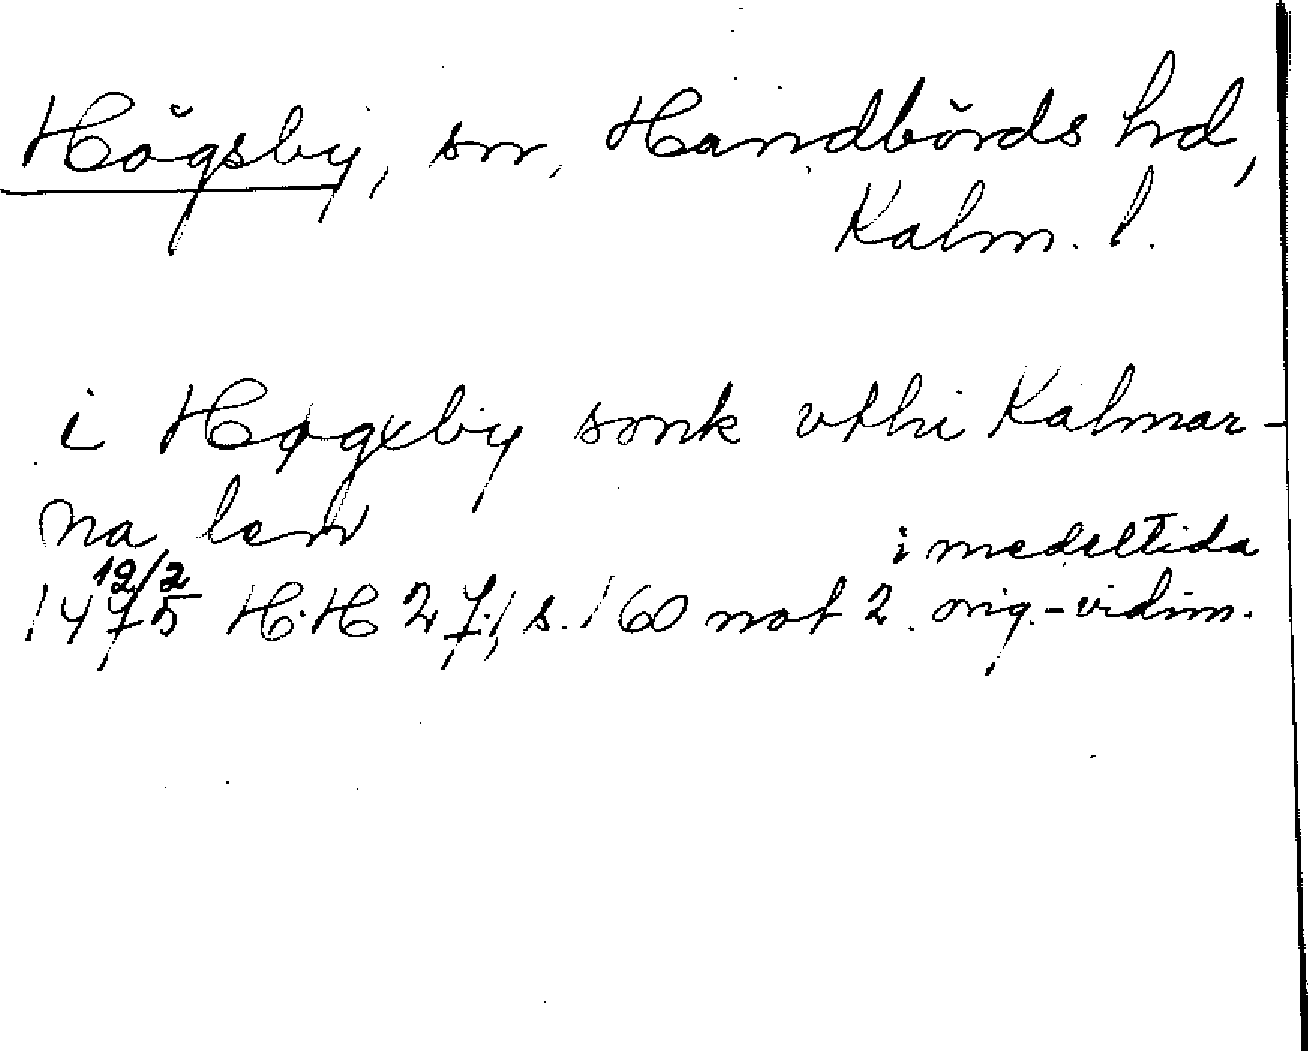 Högsby, sn, Handbörds hd,
Kalm. l.
i Høgxby sonk vthi Kalmar-
na len
i medeltida
12/2
1475 H.H 27:1, s. 160 not 2. orig.-vidim.